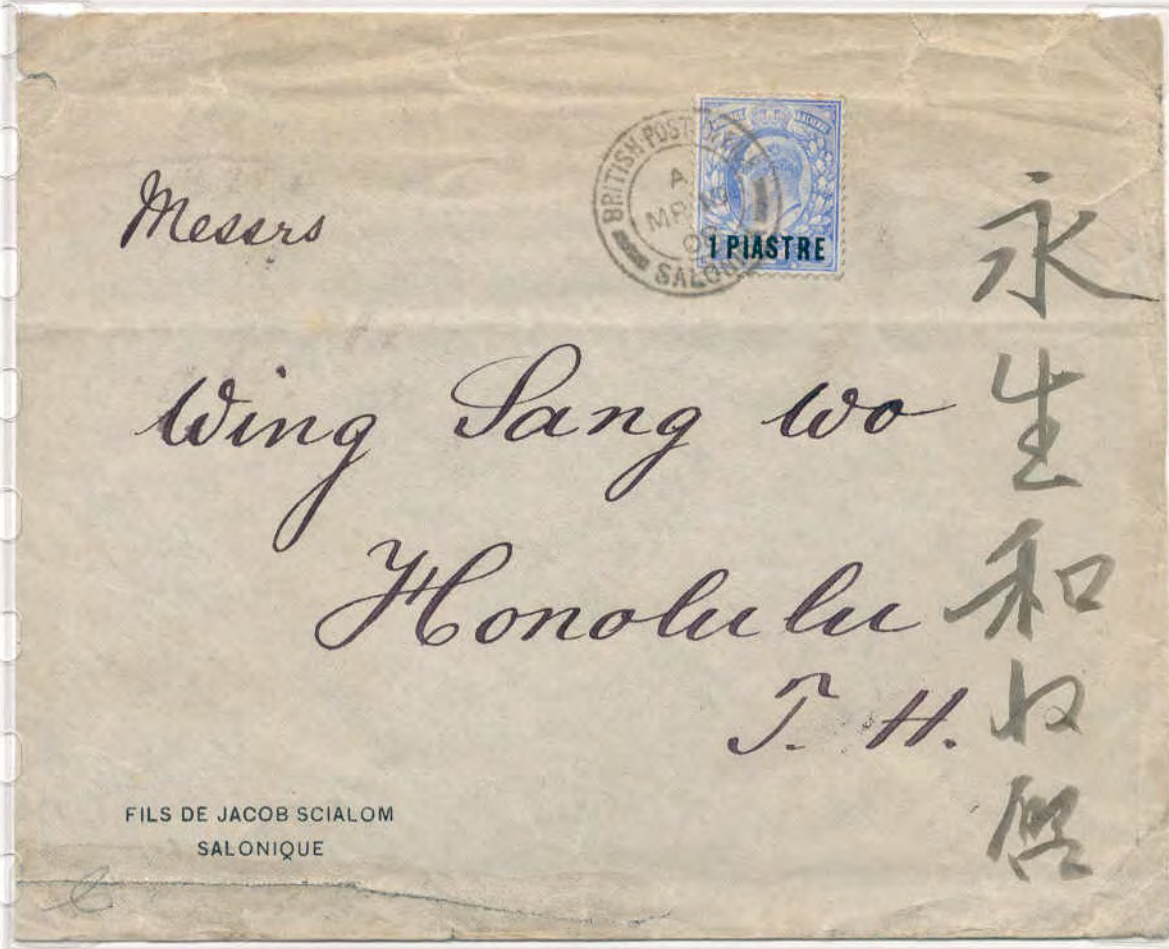 BRITISH POST
A
MR 19
SALONI
1 PIASTRE
Messrs
Wing Sang Wo
Honolulu
T. H.
永生和收啟
FILS DE JACOB SCIALOM
SALONIQUE